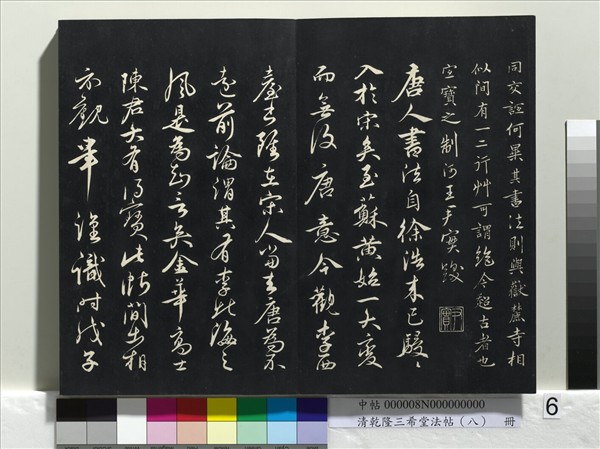 同交誼何異其書法則與嶽麓寺相
似間有一二行艸可謂絶今超古者也
宜寶之制河王㞢寶跋
唐人書法自徐浩末已駸〻
入於宋矣至蘇黃始一大變
而無復唐意今觀李西
臺書雖在宋人當去唐為不
遠前論謂其有李北海之
風是為知言矣金華高士
陳君大有得寶此帖間出相
示觀畢謹識時戊子
中帖 000008N000000000
清乾隆三希堂法帖（八） 冊
6